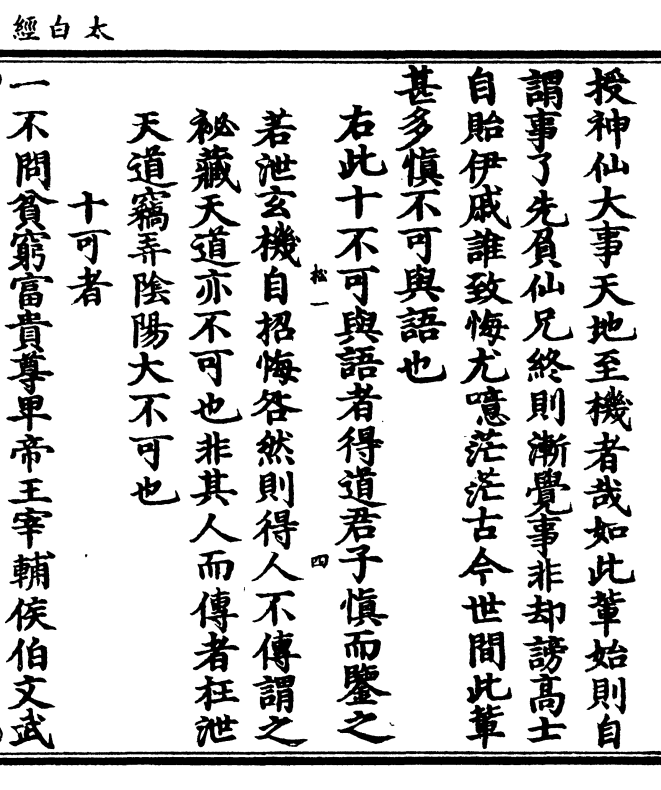 太白經
授神仙大事天地至機者哉如此輩始則自
謂事了先負仙兄終則漸覺事非却謗高士
自貽伊戚誰致悔尤噫茫茫古今世間此輩
甚多慎不可與語也
右此十不可與語者得道君子慎而鑒之
松一
四
若泄玄機自招悔咎然則得人不傳謂之
祕藏天道亦不可也非其人而傳者枉泄
天道竊弄陰陽大不可也
十可者
一不問貧窮富貴尊卑帝王宰輔侯伯文武